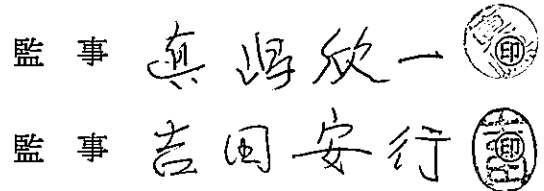 監事 真嶋欣一 印
監事 吉田安行 印